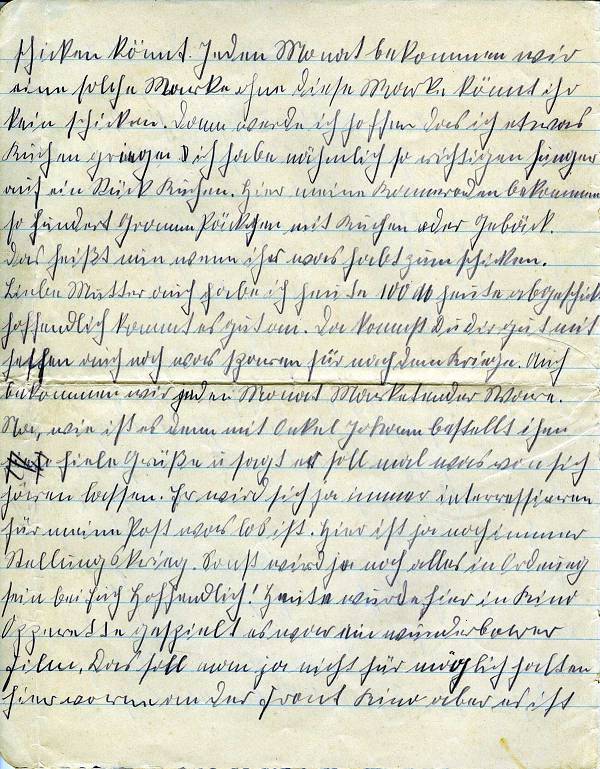 schicken könnt. Jeden Monat bekommen wir
eine solche Marke ohne diese Marke könnt ihr
kein schicken. Dann werde ich hoffen das ich etwas
Kuchen griegen d ich habe nähmlich so richtigen hunger
auf ein Stück Kuchen. Hier meine Kammeraden bekommen
so hundert Gramm Päckchen mit Kuchen oder Gebäck.
Das heißt nur wenn ihr was habt zum schicken.
Liebe Mutter auch habe ich heute 100 M heute abgeschick
hoffendlich kommt es gut an. Da kannst Du dir gut mit
helfen auch noch was sparen für nach dem Kriege. Auch
bekommen wir jeden Monat Marketender Ware.
Na, wie ist es denn mit Onkel Johann bestellt ihm
fiele Grüße u sagt er soll mal was von sich
hören lassen. Er wird sich ja immer interressieren
für meine Post was los ist. Hier ist ja noch immer
Stellungskrieg. Sonst wird ja noch alles in Ordnung
sein bei Euch Hoffendlich! Heute wurde hier in Kino
Opperette gespielt es war ein wunderbarer
Film, Das soll man ja nicht für möglich halten
hier vorne an der Front Kino aber es ist